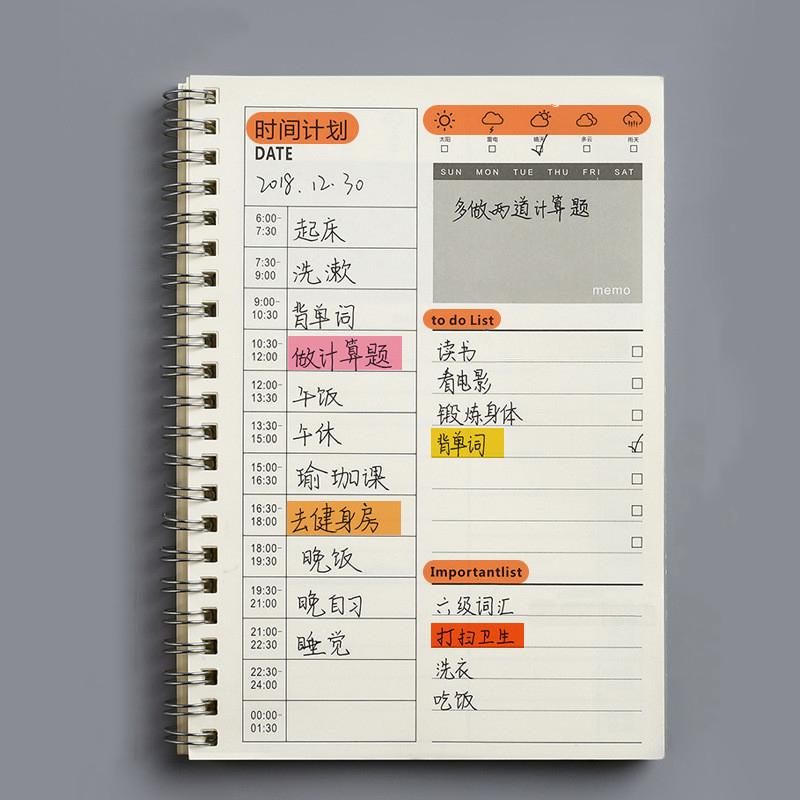 时间计划
DATE
2018.12.30
6:00-7:30 起床
7:30-9:00 洗漱
9:00-10:30 背单词
10:30-12:00 做计算题
12:00-13:30 午饭
13:30-15:00 午休
15:00-16:30 瑜珈课
16:30-18:00 去健身房
18:00-19:30 晚饭
19:30-21:00 晚自习
21:00-22:30 睡觉
22:30-24:00
00:00-01:30
太阳 雷电 晴天 多云 雨天
SUN MON TUE THU FRI SAT
多做两道计算题
memo
to do List
读书
看电影
锻炼身体
背单词
Importantlist
六级词汇
打扫卫生
洗衣
吃饭